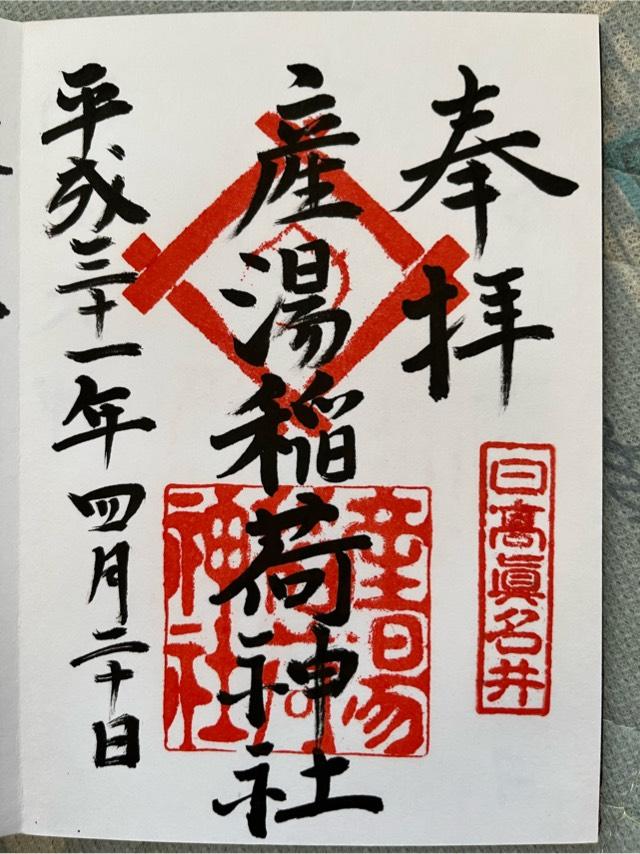 奉拝
日高眞名井
産湯稲荷神社
産湯稲荷神社
平成三十一年四月二十日